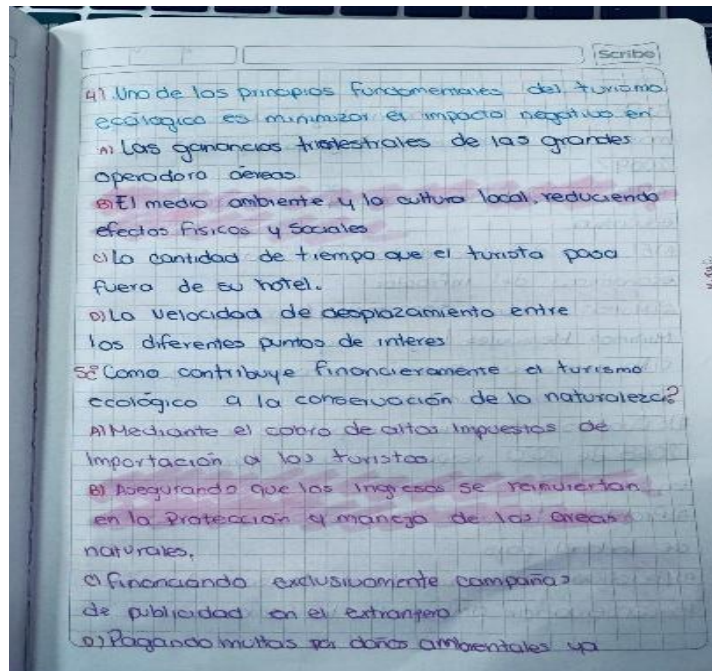 Scribe
4) Uno de los principios fundamentales del turismo
ecológico es minimizar el impacto negativo en
A) Las ganancias trimestrales de las grandes
operadora aéreas
B) El medio ambiente y la cultura local, reduciendo
efectos físicos y sociales
C) La cantidad de tiempo que el turista pasa
fuera de su hotel.
D) La velocidad de desplazamiento entre
los diferentes puntos de interes
5¿ Como contribuye financieramente el turismo
ecológico a la conservación de la naturaleza?
A) Mediante el cobro de altos impuestos de
importación a los turistas
B) Asegurando que los ingresos se reinviertan
en la protección y manejo de las áreas
naturales.
C) financiando exclusivamente campañas
de publicidad en el extranjero
D) Pagando multas por daños ambientales ya